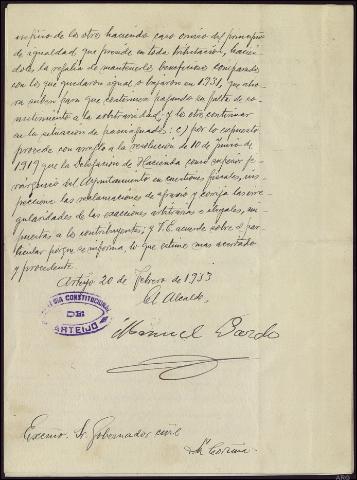 de los otros haciendo caso omiso del principio
de igualdad, que preside en toda tributación,
doles la regalia de mantenerlos beneficiosos comparados
con los que quedaron igual o bajaron en 1931, que aho-
ra suben para que continuen pagando en falta de co-
nocimiento a la arbitrariedad; y los otros continuar
en la situacion de: c) por lo expuesto
procede con arreglo a la resolución de 10 de Junio de
1919 que la Delegación de Hacienda como superior je-
rárquico del Ayuntamiento en cuestiones fiscales, ins-
peccione las reclamaciones de agravio y corrija las irre-
gularidades de las exacciones arbitrarias e ilegales, im-
puestas a los contribuyentes; y V.E. acuerde sobre el par-
ticular porque se informa, lo que estime mas acertado
y procedente.
Arteijo 20 de Febrero de 1933
El Alcalde,
ALCALDIA CONSTITUCIONAL
DE
ARTEIJO
Manuel Pardo
Excmo. Sr. Gobernador civil
La Coruña.
ARG